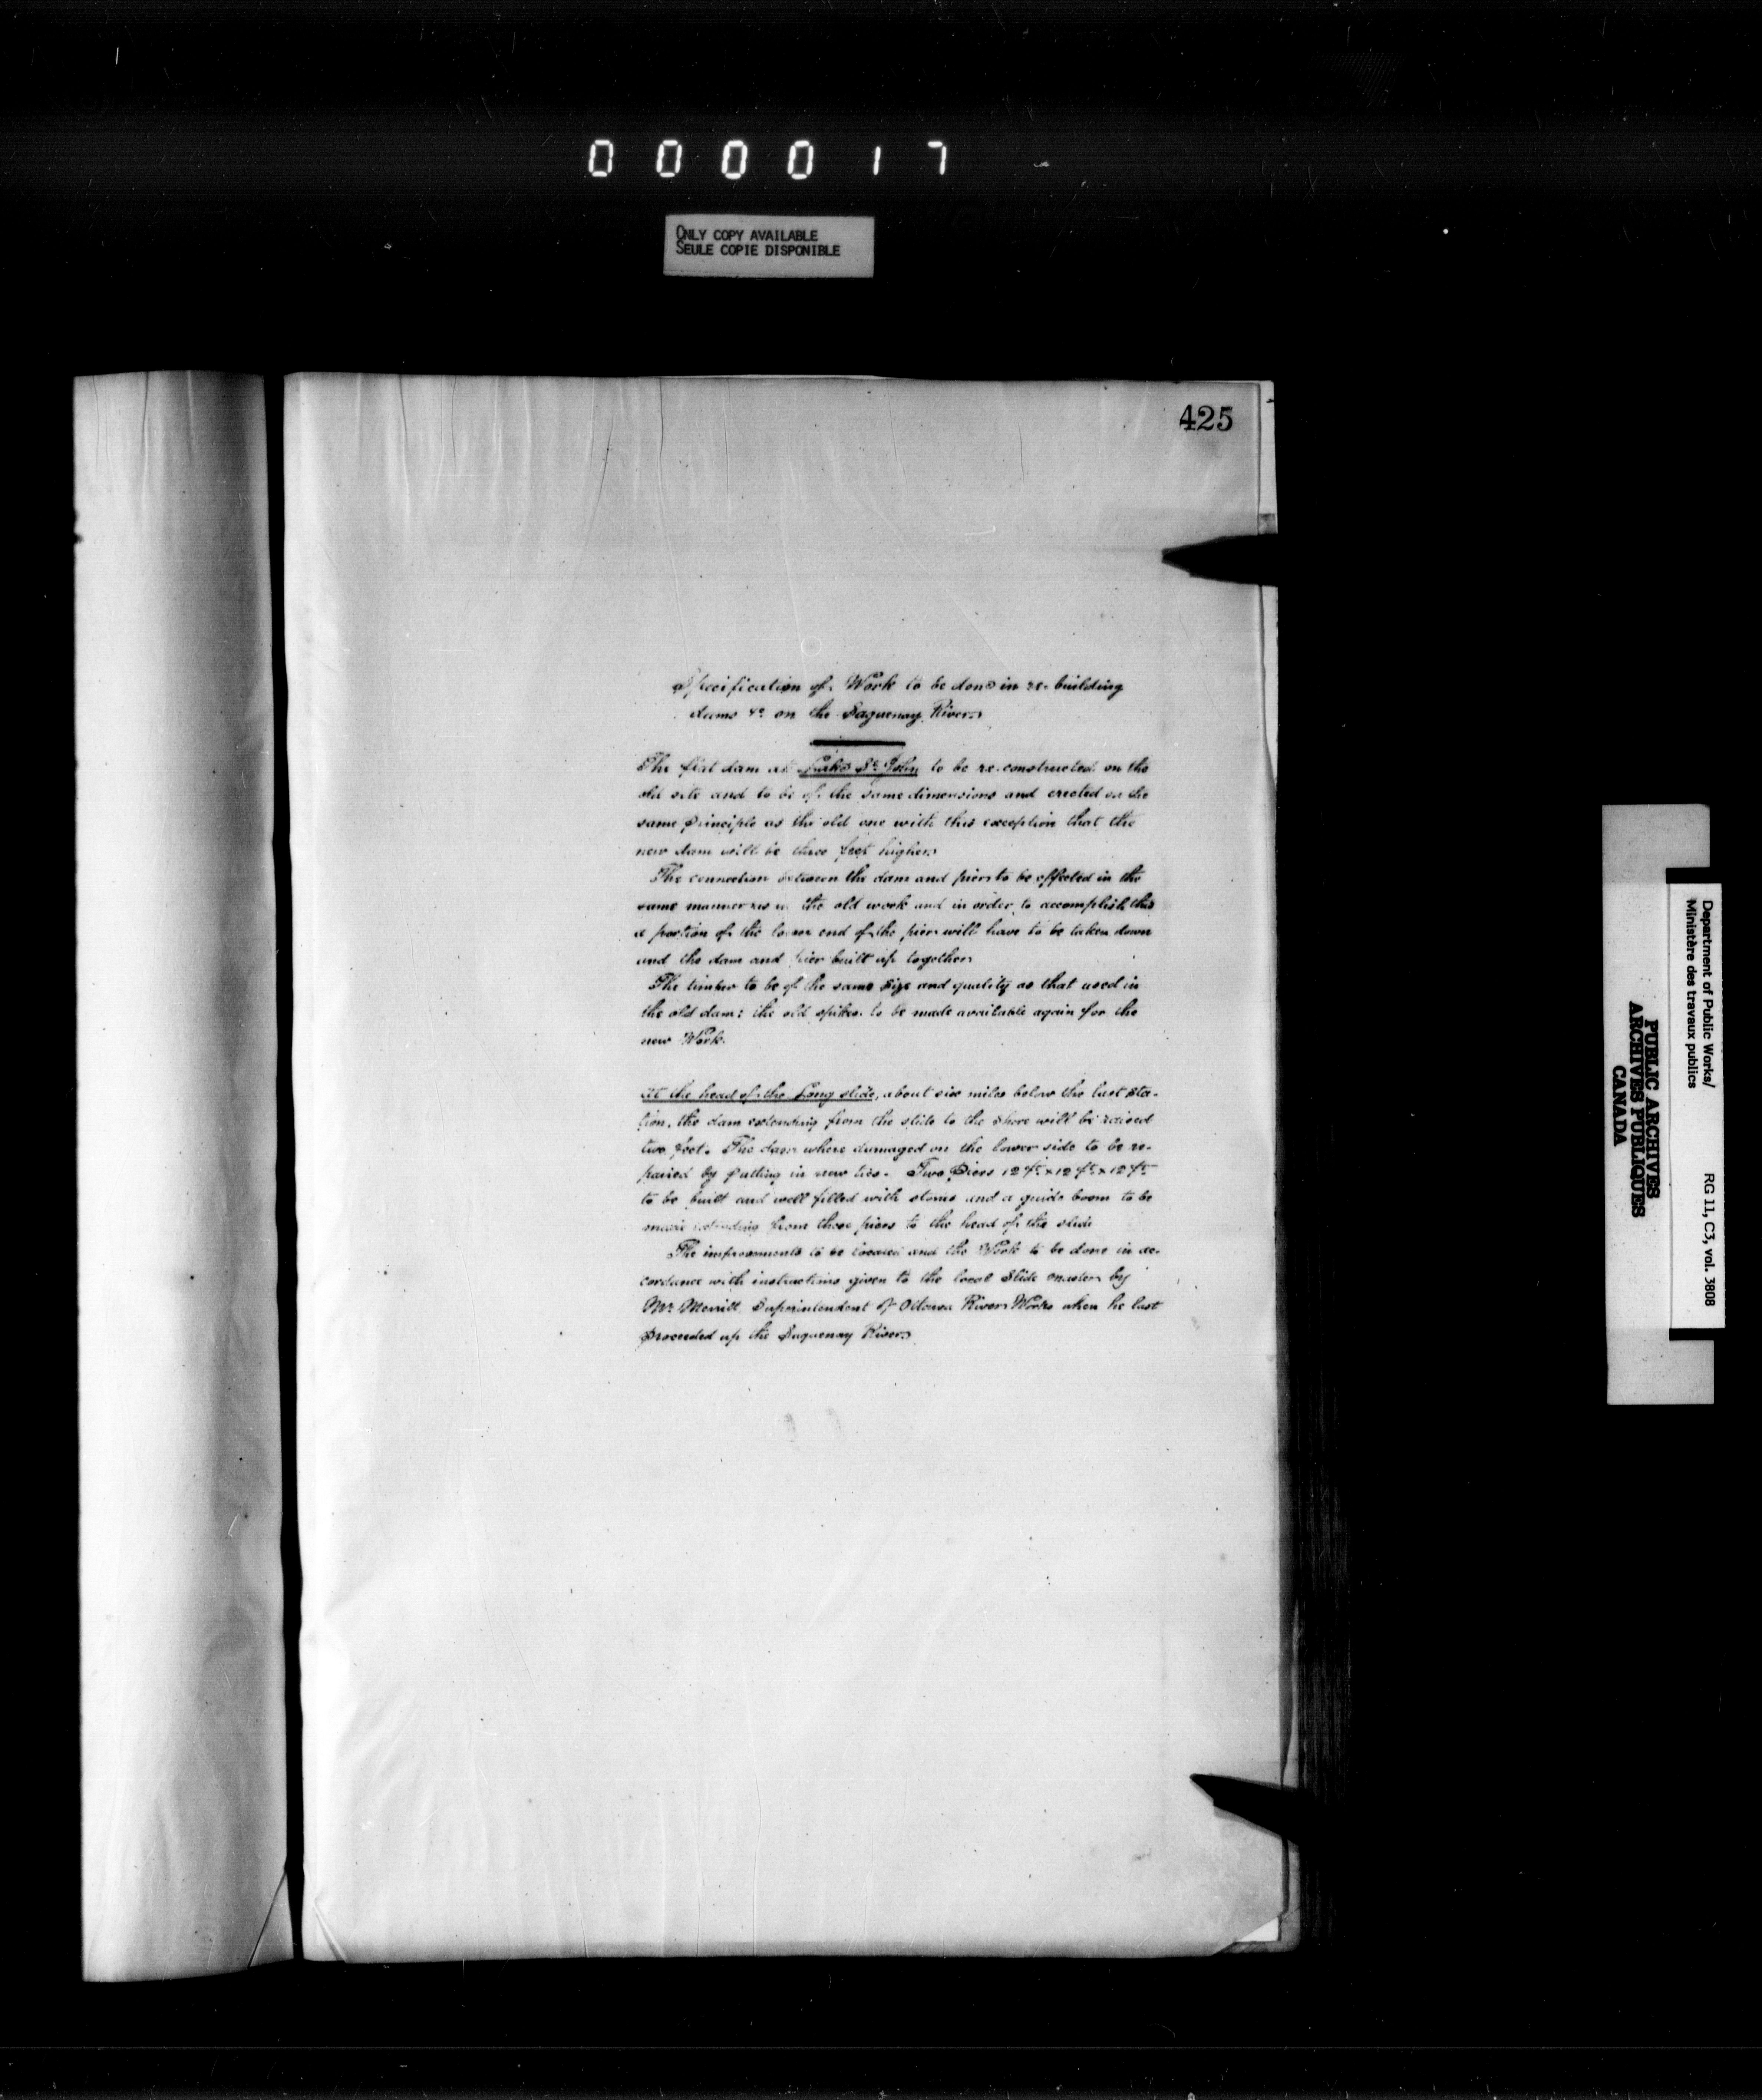 0 0 0 0 1 7
ONLY COPY AVAILABLE
SEULE COPIE DISPONIBLE
425
Specification of Work to be done in re-building
dams &c on the Saguenay River
The flat dam at Lake St John to be re-constructed on the
old site and to be of the same dimensions and erected on the
same principle as the old one with this exception that the
new dam will be three feet higher
The connection between the dam and piers to be effected in the
same manner as in the old work and in order to accomplish this
a portion of the lower end of the pier will have to be taken down
and the dam and pier built up together
The timber to be of the same size and quality as that used in
the old dam: the old spikes to be made available again for the
new Work.
At the head of the Long slide, about six miles below the last sta-
tion, the dam extending from the slide to the shore will be raised
two feet. The dam where damaged on the lower side to be re-
paired by putting in new ties. Two Piers 12 ft x 12 ft x 12 ft
to be built and well filled with stone and a guide boom to be
made extending from these piers to the head of the slide
The improvements to be located and the Work to be done in ac-
cordance with instructions given to the local Slide master by
Mr Merrill Superintendent of Ottawa River Works when he last
proceeded up the Saguenay River
Department of Public Works/
Ministère des travaux publics
RG 11, C3, vol. 3808
PUBLIC ARCHIVES
ARCHIVES PUBLIQUES
CANADA